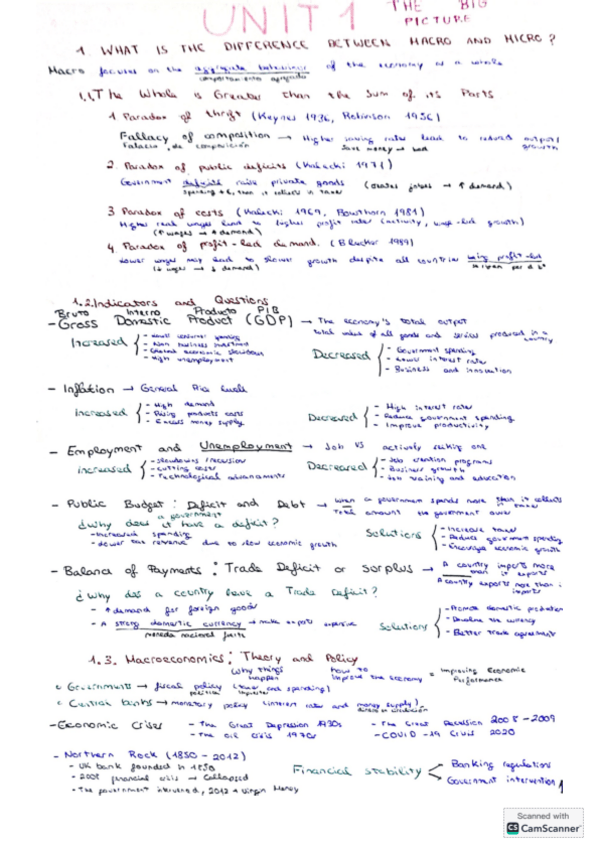 UNIT 1 THE BIG PICTURE
1. WHAT IS THE DIFFERENCE BETWEEN MACRO AND MICRO?
Macro focuses on the aggregate behaviour of the economy as a whole
comportamiento agregado
1.1. The Whole is Greater than the Sum of its Parts
1. Paradox of thrift (Keynes 1936, Robinson 1956)
Fallacy of composition → Higher saving rates lead to reduced output/growth
Falacia de composición
2. Paradox of public deficits (Kalecki 1971)
Government deficits raise private (creates jobs → ↑ demand)
3. Paradox of costs (Kalecki 1969, Rowthorn 1981)
Higher real wages lead to higher profit rates (activity, wage-led growth)
(↑ wages → ↑ demand)
4. Paradox of profit-led demand. (Blecker 1989)
Lower wages may lead to slower growth despite all countries being profit-led
(↓ wages → ↓ demand)
1.2. Indicators and Questions
Bruto Interno Producto PIB
- Gross Domestic Product (GDP) → The economy's total output
total value of all goods and services produced in a country
Increased
- Lower consumer spending
- Global economic slowdown
- High unemployment
Decreased
- Government spending
- Lower interest rates
- Business and innovation
- Inflation → General Price Levels
Increased
- High demand
- Rising products costs
- Excess money supply
Decreased
- High interest rates
- Reduce government spending
- Improve productivity
- Employment and Unemployment → Job vs actively seeking one
Increased
- Slowdowns / recession
- Technological advancements
Decreased
- Job creation programs
- Business growth
- Job training and education
- Public Budget: Deficit and Debt → When a government spends more than it collects in taxes
Total amount the government owes
¿Why does a government have a deficit?
it
- Increased spending
- Lower tax revenue due to slow economic growth
Solutions
- Increase taxes
- Reduce government spending
- Encourage economic growth
- Balance of Payments: Trade Deficit or Surplus → A country imports more than it exports
A country exports more than imports
¿Why does a country have a Trade Deficit?
- ↑ demand for foreign goods
- A strong domestic currency → make exports expensive
moneda nacional fuerte
Solutions
- Promote domestic production
- Devalue the currency
- Better trade agreements
1.3. Macroeconomics: Theory and Policy
Why things happen
how to improve the economy
= Improving Economic Performance
Governments → fiscal policy (taxes and spending)
Central banks → monetary policy (interest rates and money supply)
dinero en circulación
- Economic Crises
- The Great Depression 1930s
- The oil crisis 1970s
- The Great Recession 2008-2009
- COVID-19 Crisis 2020
- Northern Rock (1850-2012)
- UK bank founded in 1850
- 2008 financial crisis → Collapsed
- The government intervened, 2012 → Virgin Money
Financial stability
Banking regulations
Government intervention
1
Scanned with
CS CamScanner